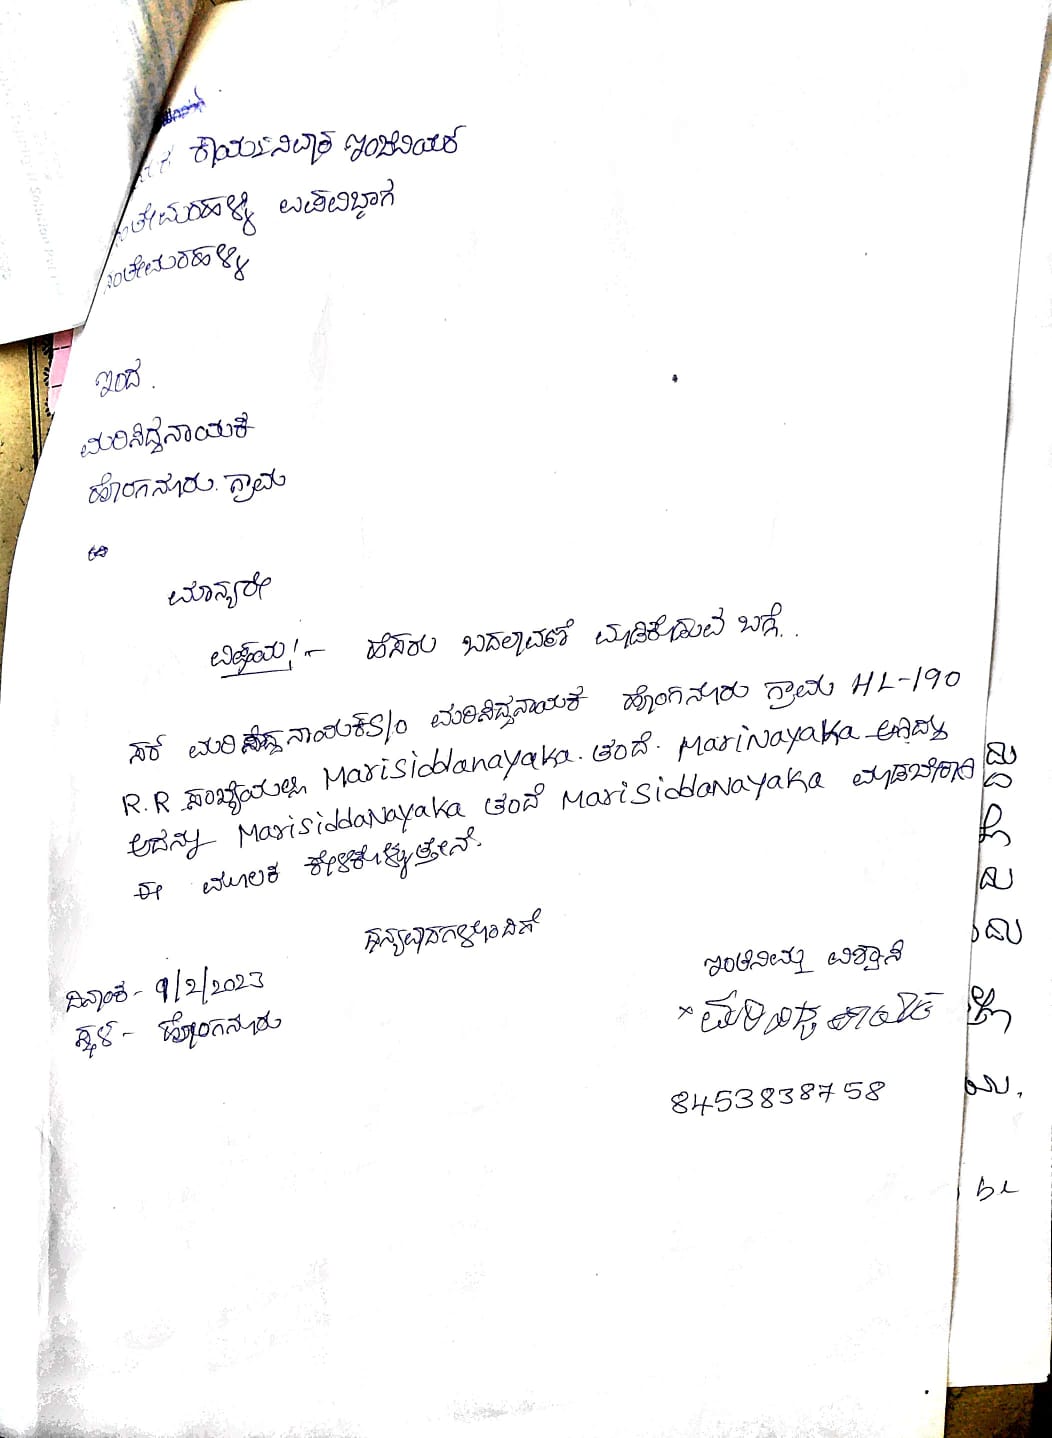 ಕಾರ್ಯನಿರ್ವಾಹಕ ಇಂಜಿನಿಯರ್
ಸಂತೇಮರಹಳ್ಳಿ ಉಪವಿಭಾಗ
ಸಂತೇಮರಹಳ್ಳಿ
ಇಂದ.
ಮರಿಸಿದ್ದನಾಯಕ
ಹೊಂಗನೂರು. ಗ್ರಾಮ
ಮಾನ್ಯರೇ
ವಿಷಯ:- ಹೆಸರು ಬದಲಾವಣೆ ಮಾಡಿಕೊಡುವ ಬಗ್ಗೆ.
ಸರ್ ಮರಿಸಿದ್ದನಾಯಕ S/o ಮರಿಸಿದ್ದನಾಯಕ ಹೊಂಗನೂರು ಗ್ರಾಮ HL-190
R.R ಸಂಖ್ಯೆಯಲ್ಲಿ Marisiddanayaka. ತಂದೆ. MariNayaka ಆಗಿದ್ದು
ಅದನ್ನು MarisiddaNayaka ತಂದೆ MarisiddaNayaka ಮಾಡಬೇಕಾಗಿ
ಈ ಮೂಲಕ ಕೇಳಿಕೊಳ್ಳುತ್ತೇನೆ.
ಧನ್ಯವಾದಗಳೊಂದಿಗೆ
ಇಂತಿನಿಮ್ಮ ವಿಶ್ವಾಸಿ
ದಿನಾಂಕ - 9/2/2023
ಸ್ಥಳ - ಹೊಂಗನೂರು
× ಮರಿಸಿದ್ದನಾಯಕ
8453838758